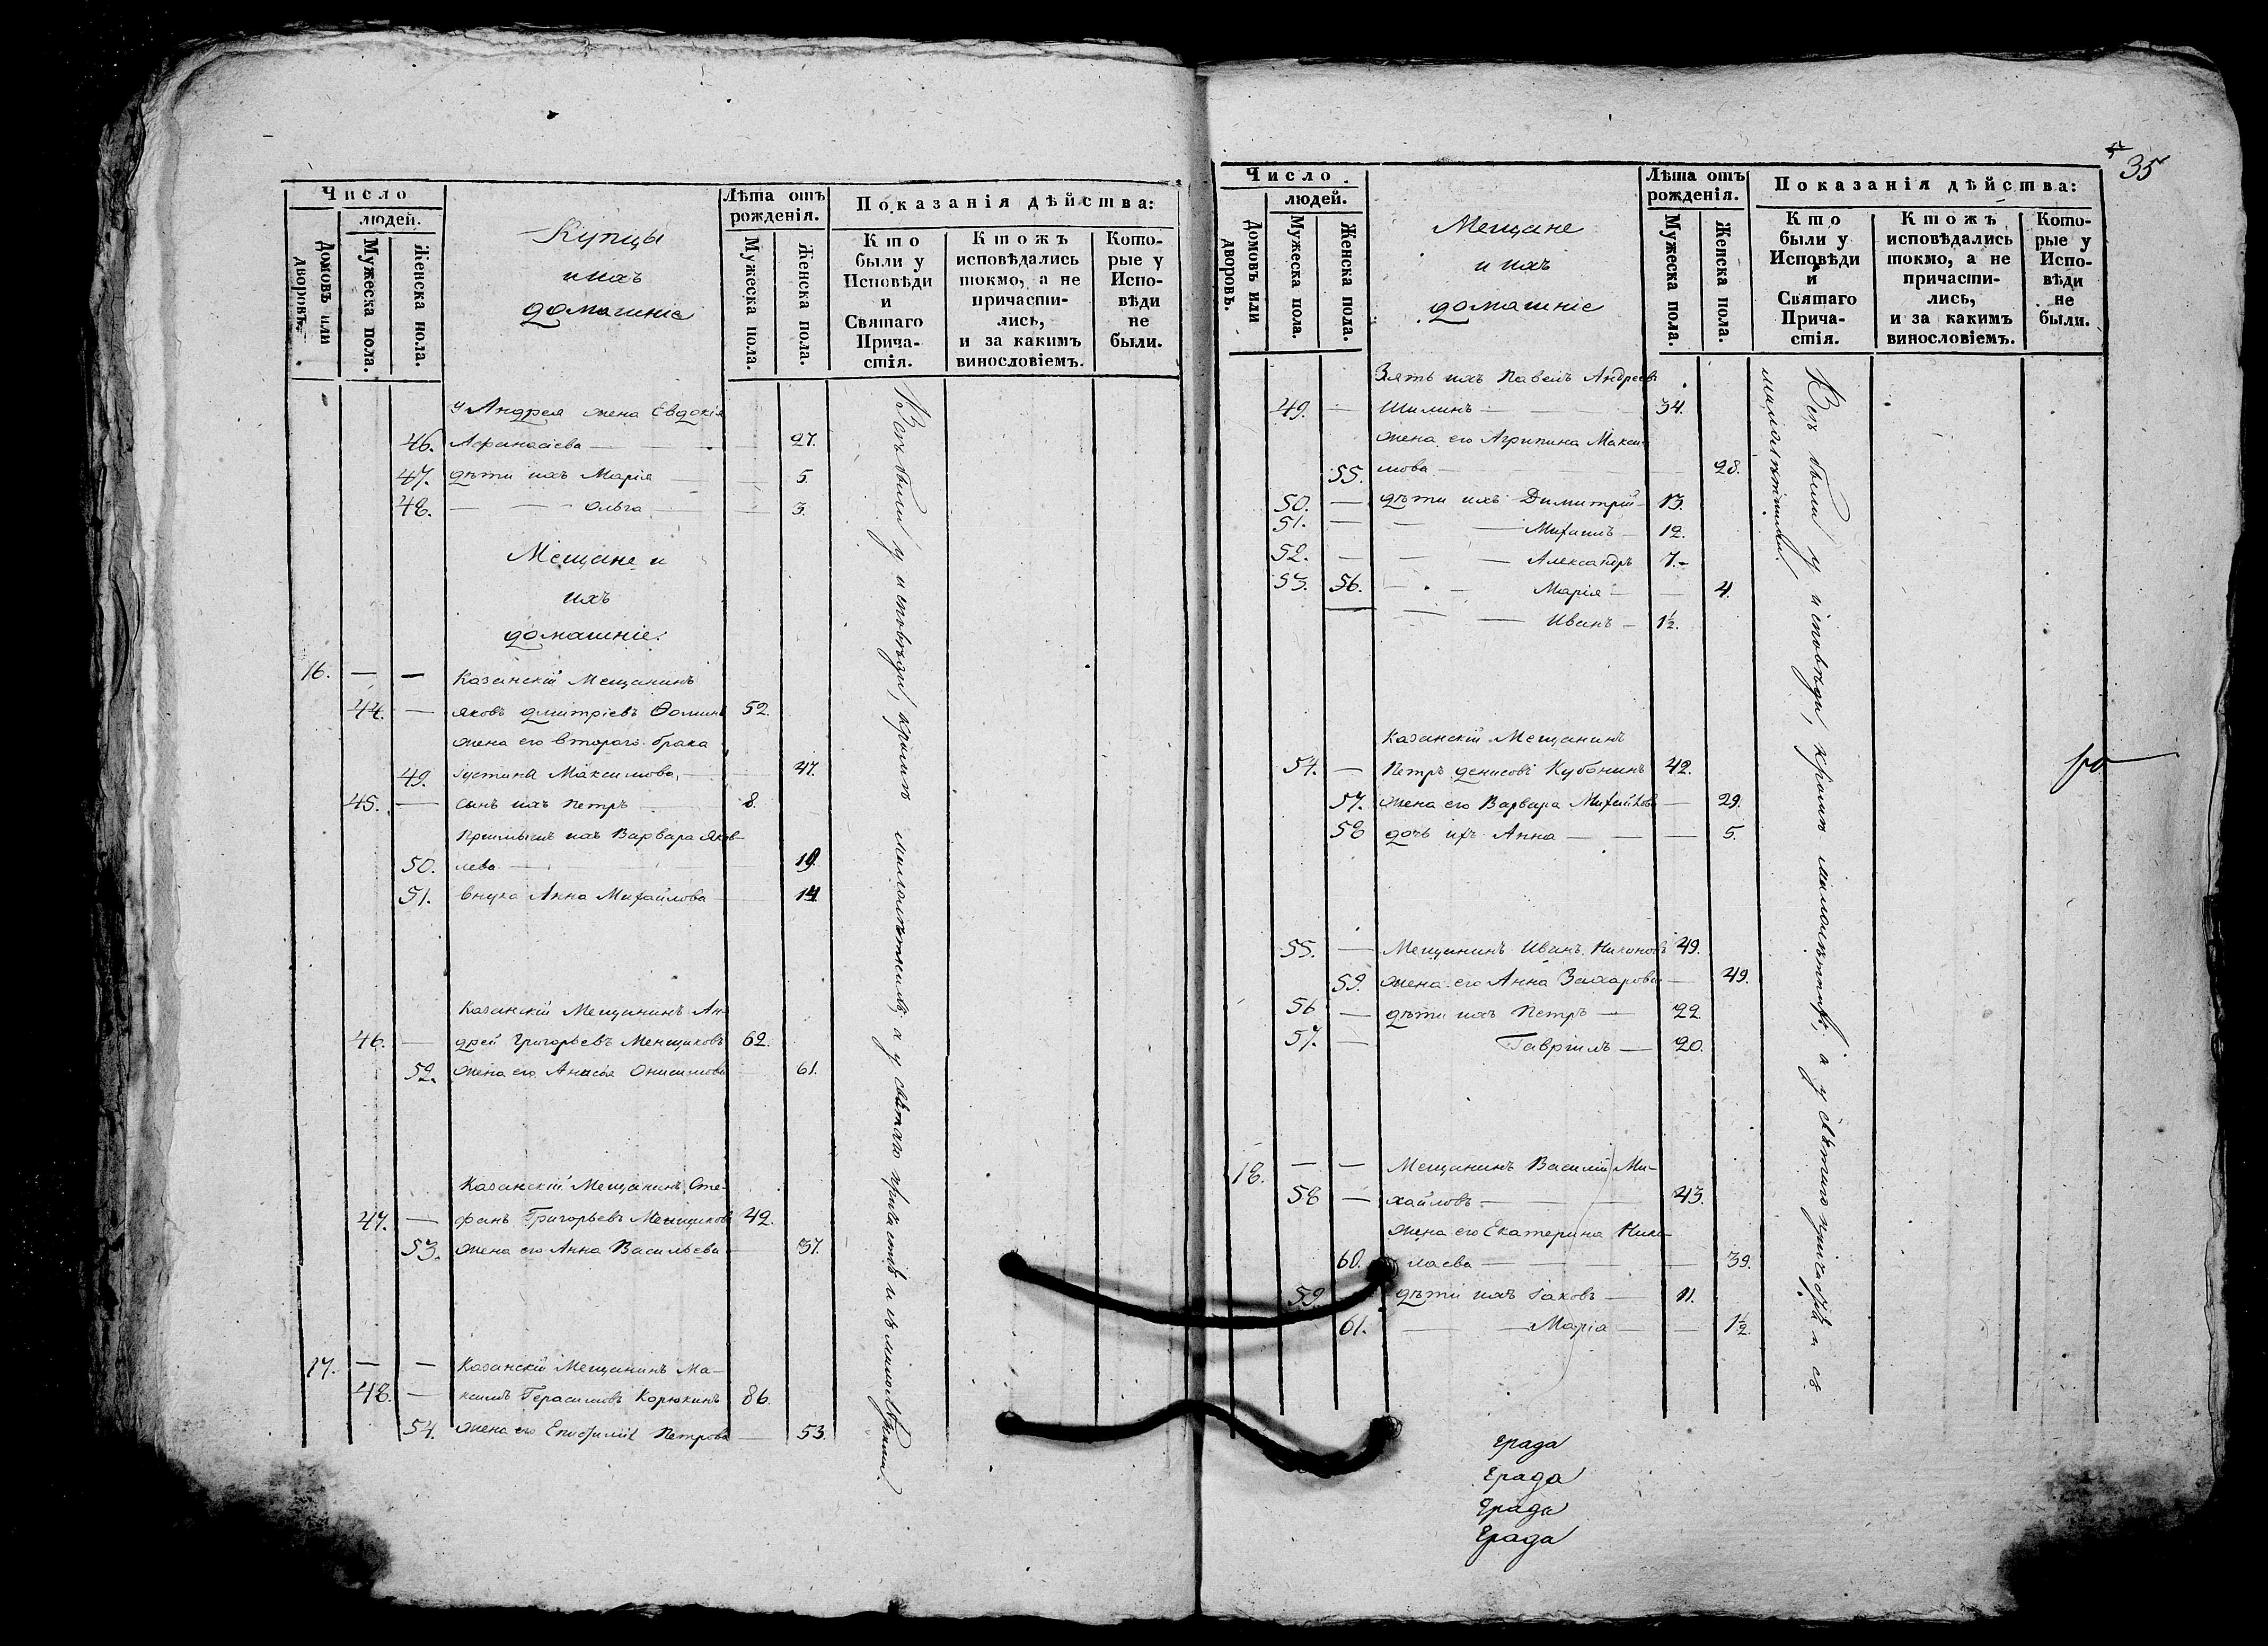 Число
людей.
Домовъ или дворовъ.
Мужеска пола.
Женска пола.
Купцы
и ихъ
домашніе
Лѣта отъ рожденія.
Мужеска пола.
Женска пола.
Показанія дѣйства:
Кто были у Исповѣди и Святаго Причастія.
Ктожъ исповѣдались токмо, а не причастились, и за какимъ винословіемъ.
Которые у Исповѣди не были.
у Андрея жена Евдокія
46. Афанасіева — 27.
47. дѣти ихъ Марія — 5
48. — — Ольга — 3.
Мещане и
ихъ
домашніе.
16. — — Казанскій Мещанинъ
44. — Яковъ Дмитріевъ Ѳоминъ 52.
жена его втораго брака
49. Іустина Максимова, — 47.
45. — сынъ ихъ Петръ 8.
Пріемышъ ихъ Варвара Яков-
50. лева — 19.
51. внука Анна Михайлова — 14
Казанскій Мещанинъ Ан-
46. — дрей Григорьевъ Менщиковъ 62.
52. жена его Анисья Онисимова 61.
Казанскій Мещанинъ Сте-
47. — фанъ Григорьевъ Менщиковъ 42.
53. жена его Анна Васильева — 37.
17. — — Казанскій Мещанинъ Ма-
48. — ксимъ Герасимовъ Корюкинъ 86.
54. жена его Петрова — 53.
Всѣ были у исповѣди, кромѣ малолѣтнихъ, а у святаго причастія и съ малолѣтними.
35
Число.
людей.
Домовъ или дворовъ.
Мужеска пола.
Женска пола.
Мещане
и ихъ
домашніе
Лѣта отъ рожденія.
Мужеска пола.
Женска пола.
Показанія дѣйства:
Кто были у Исповѣди и Святаго Причастія.
Ктожъ исповѣдались токмо, а не причастились, и за какимъ винословіемъ.
Которые у Исповѣди не были.
Зять ихъ Павелъ Андреевъ
49. — Шилинъ — 34.
жена его Агрипина Макси-
55. мова — 28.
50. — дѣти ихъ Димитрій — 13.
51. — — — Михаилъ — 12.
52. — — — Александръ 7. —
53. 56. — — Марія — 4.
— — Иванъ — 1½.
Казанскій Мещанинъ
54. — Петръ Денисовъ Кубанинъ 42.
57. жена его Варвара Михайлова — 29.
58 дочь ихъ Анна — — 5.
55. — Мещанинъ Иванъ Никоновъ 49.
59. жена его Анна Захарова — 49.
56 — дѣти ихъ Петръ — 22.
57. — Гавріилъ — 20.
18. — — Мещанинъ Василій Ми-
58 — хайловъ — 43.
жена его Екатерина Нико-
60. лаева — 39.
59. дѣти ихъ Іаковъ — 11.
61. — — Маріа — — 1½.
Всѣ были у исповѣди, кромѣ малолѣтнихъ, а у святаго причастія и съ
малолѣтними
града
града
града
града